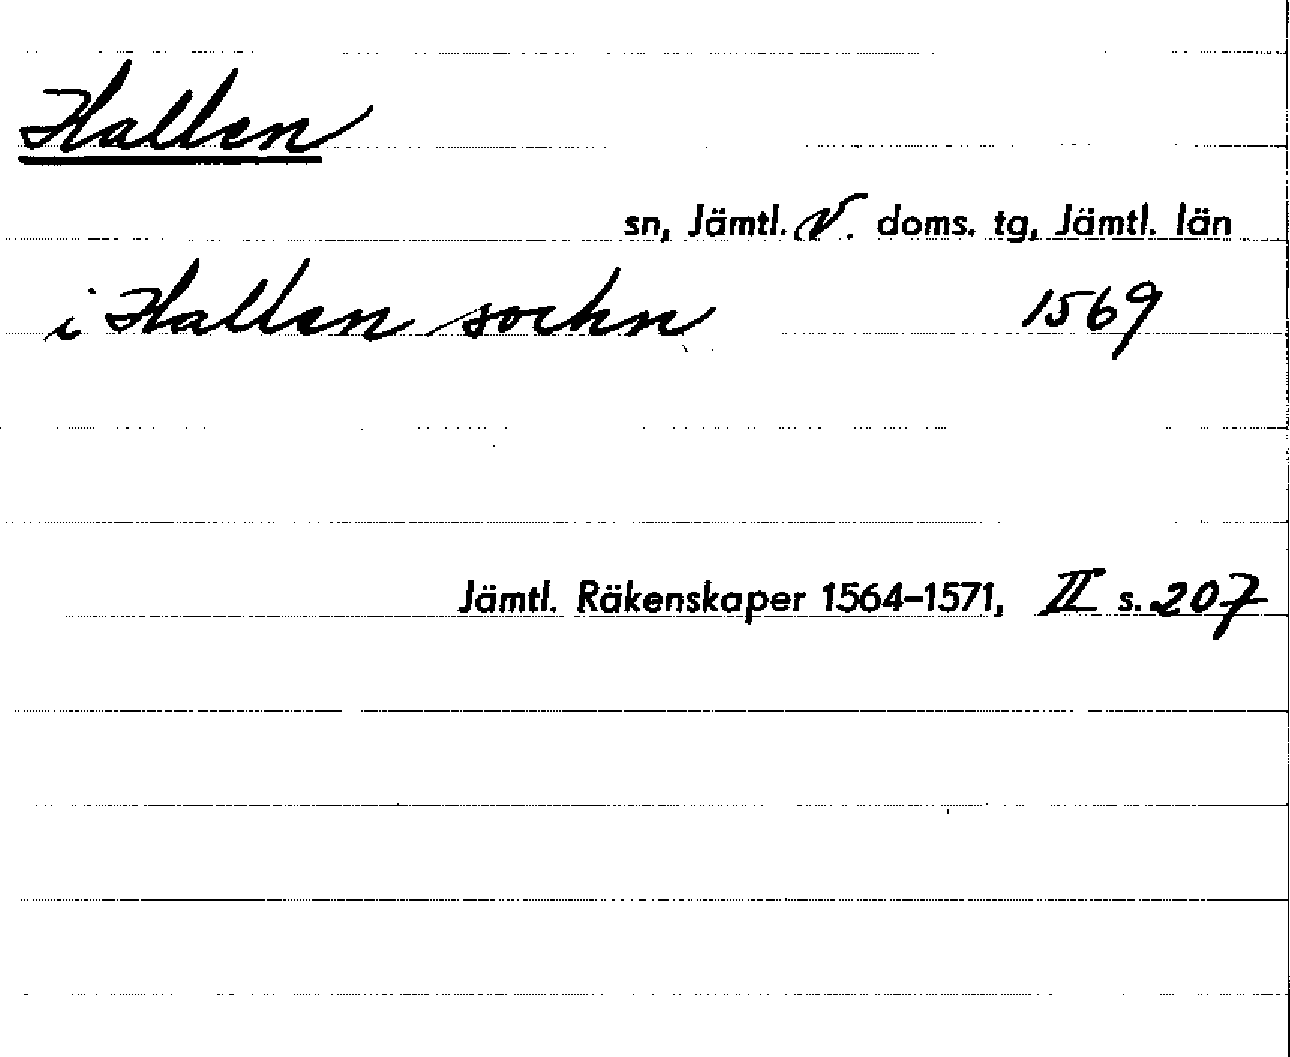 Hallen
sn, Jämtl. V. doms. tg, Jämtl. län
i Hallen sochn 1569
Jämtl. Räkenskaper 1564–1571, II s. 207